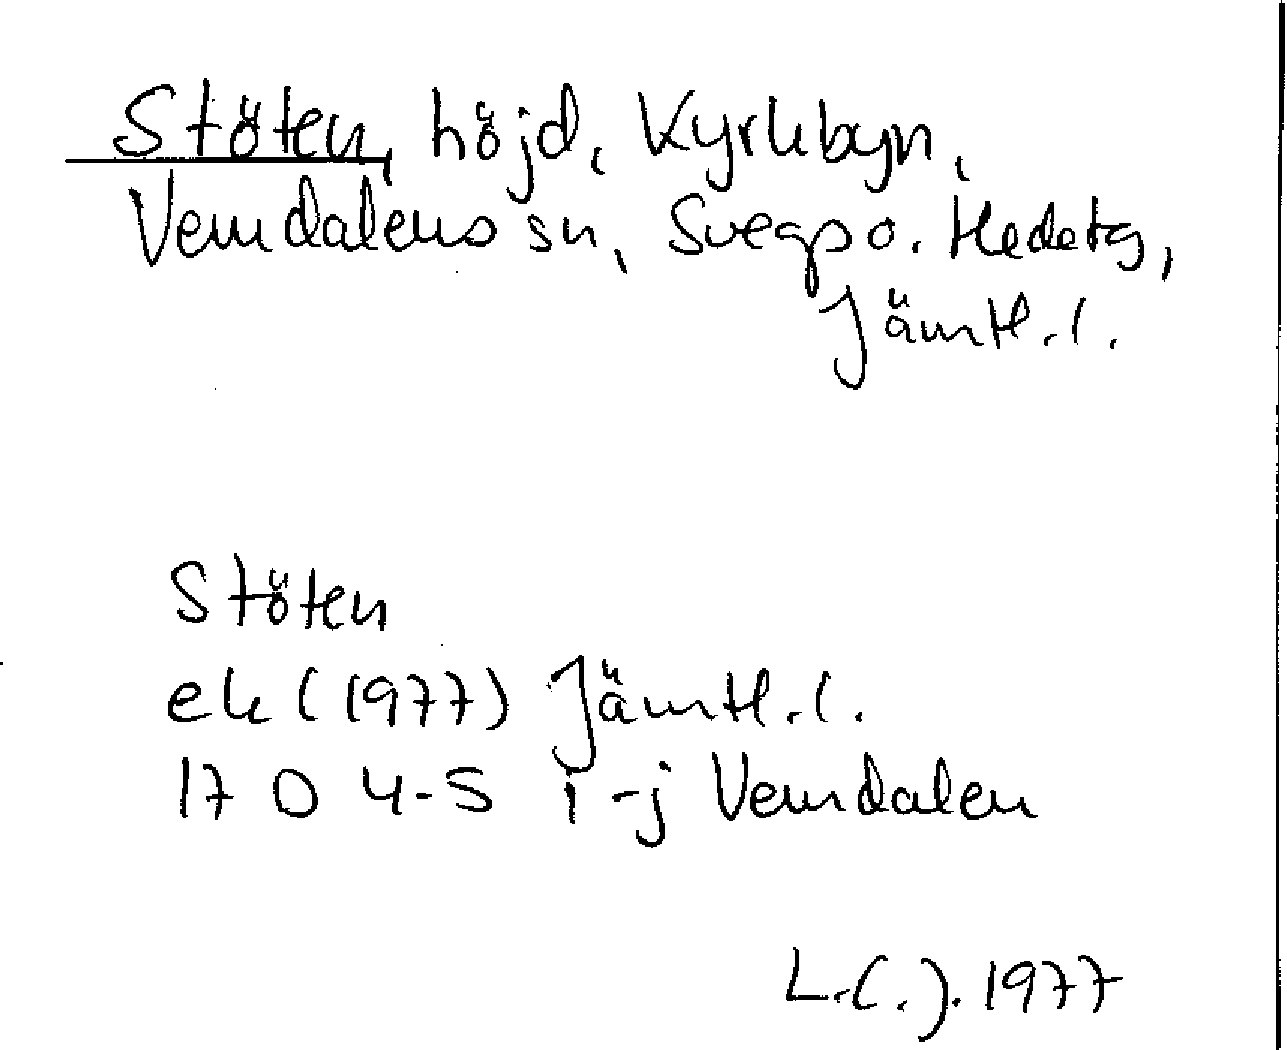 Stöten, höjd, Kyrkbyn,
Vemdalens sn, Svegs po. Hedetg,
Jämtl. l.
Stöten
ek (1977) Jämtl. l.
17 D 4-5 i-j Vemdalen
1977